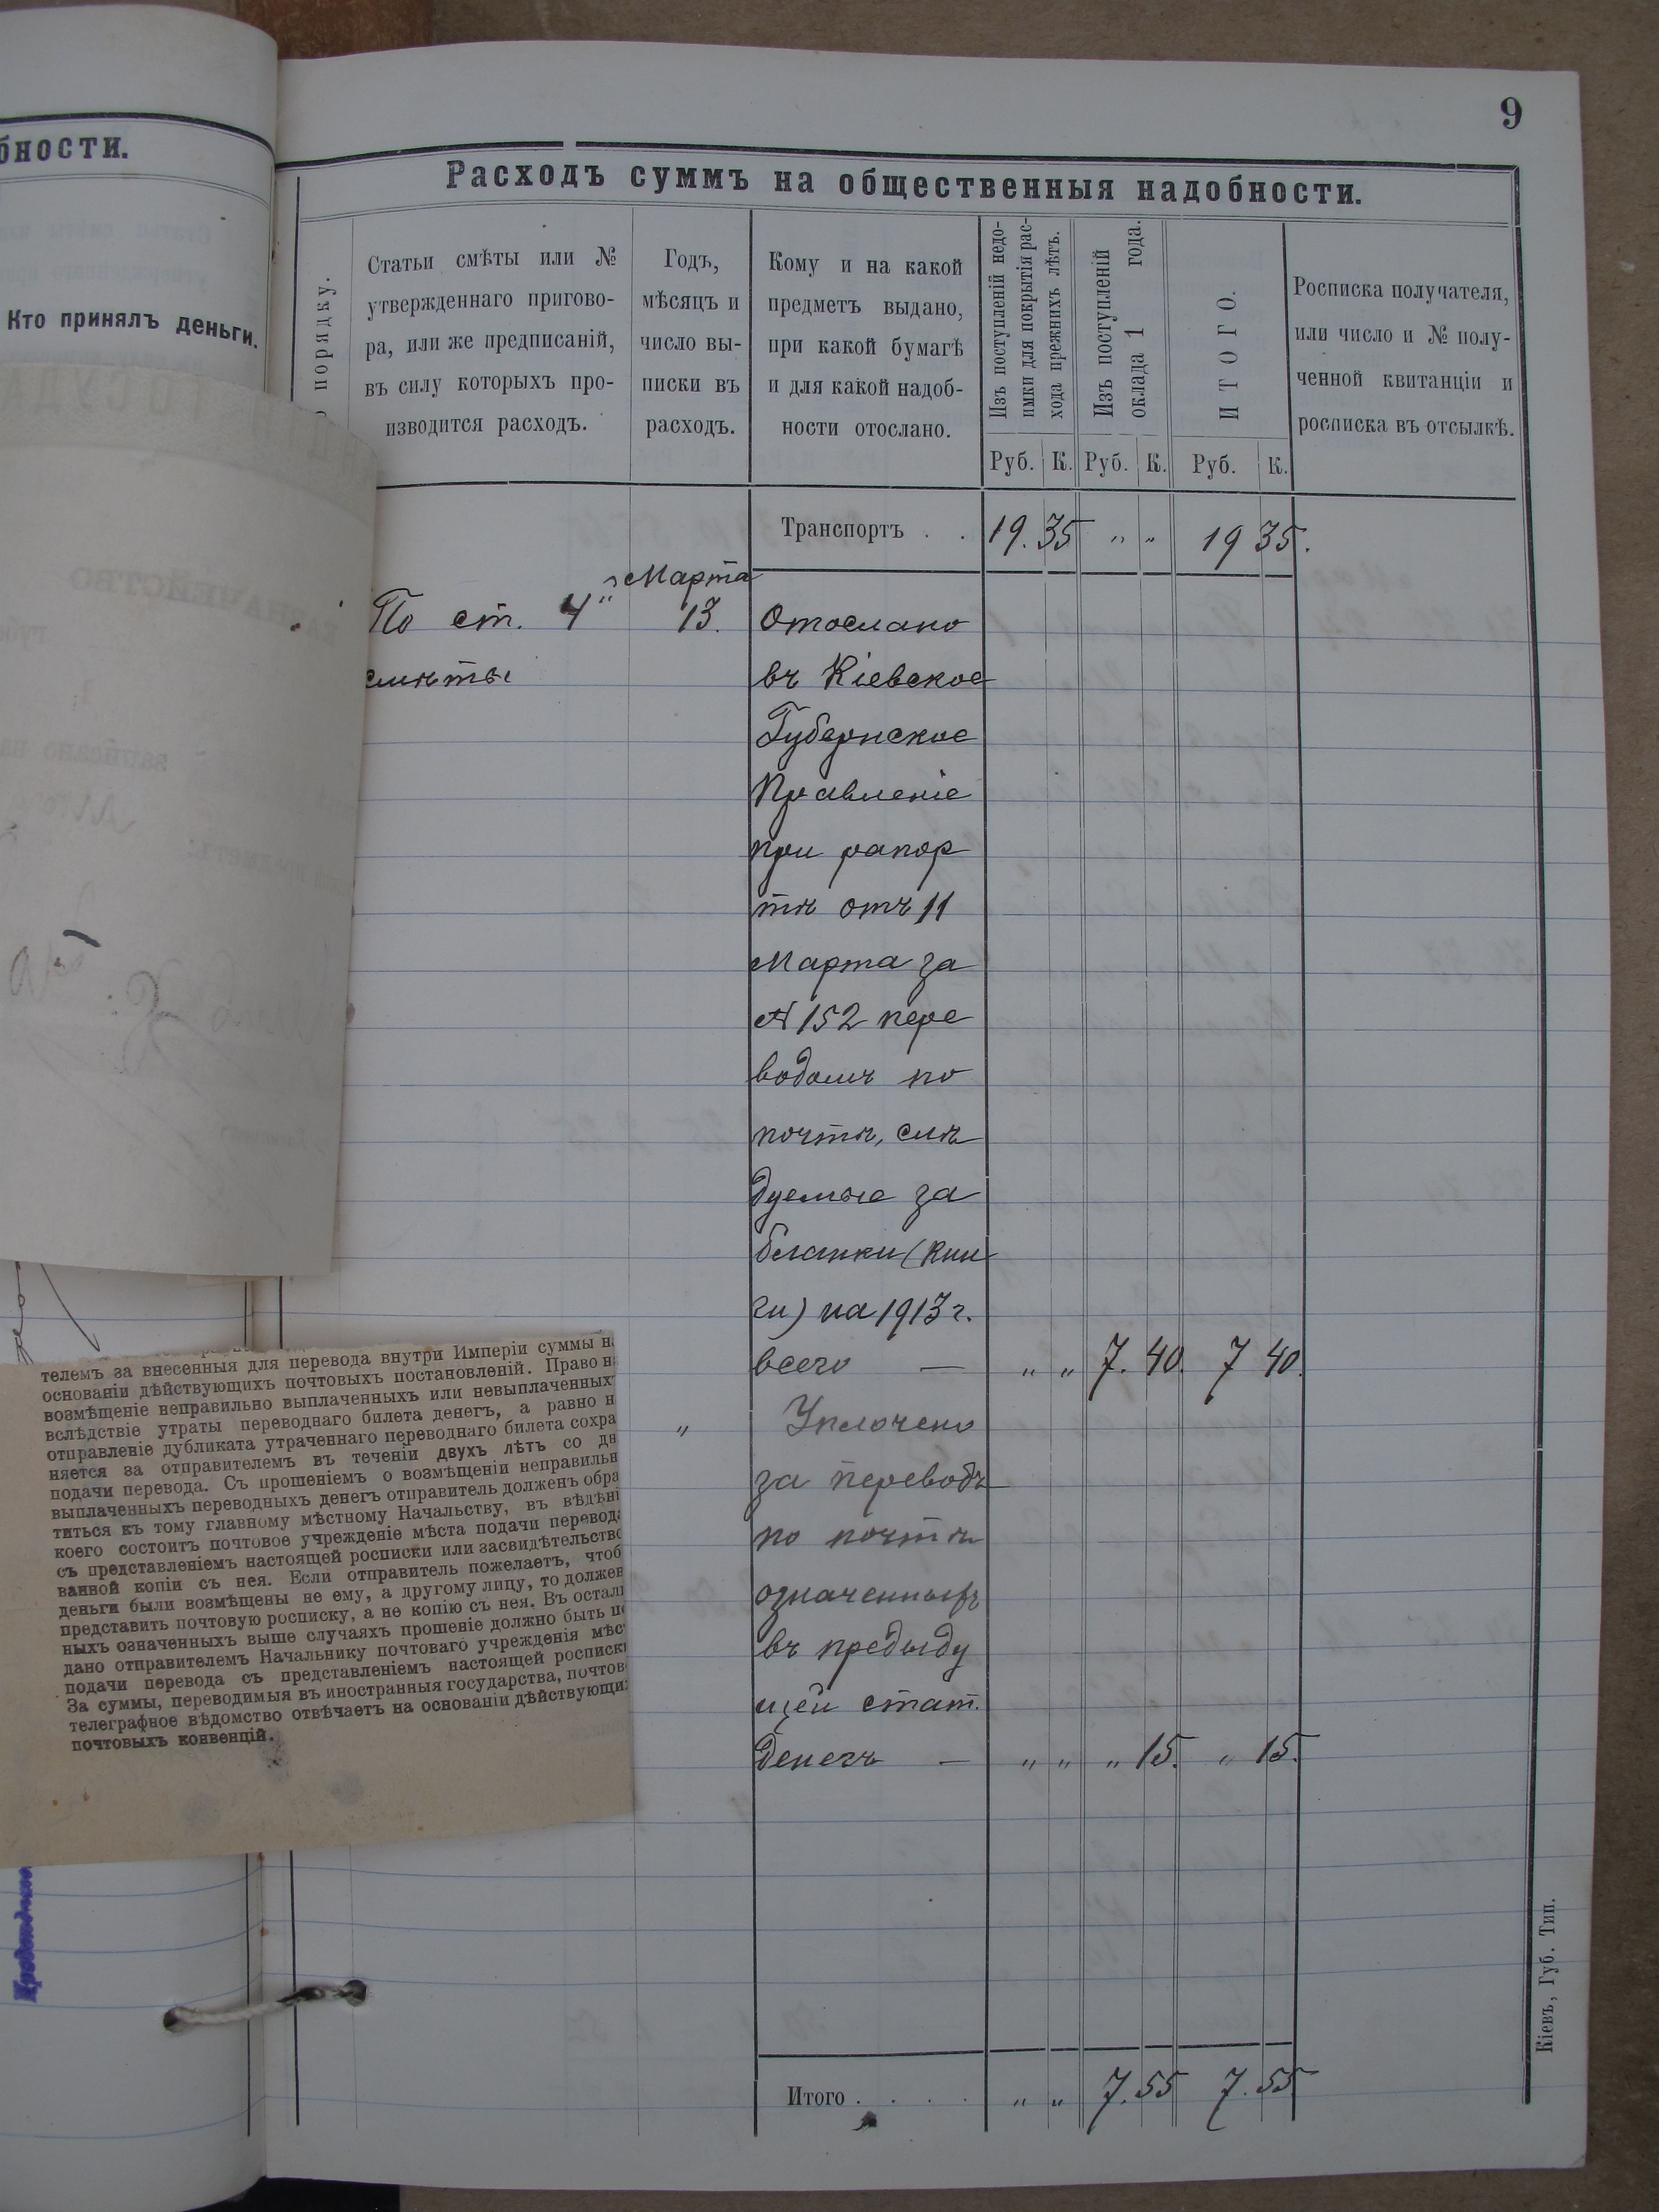 9
бности.
Кто принялъ деньги.
Расходъ суммъ на общественныя надобности.
порядку.
Статьи смѣты или №
утвержденнаго пригово-
ра, или же предписаній,
въ силу которыхъ про-
изводится расходъ.
Годъ,
мѣсяцъ и
число вы-
писки въ
расходъ.
Кому и на какой
предметъ выдано,
при какой бумагѣ
и для какой надоб-
ности отослано.
Изъ поступленій недо-
имки для покрытія рас-
хода прежнихъ лѣтъ.
Изъ поступленій
оклада 1 года.
ИТОГО.
Росписка получателя,
или число и № полу-
ченной квитанціи и
росписка въ отсылкѣ.
Руб. К. Руб. К. Руб. К.
Транспортъ . . 19. 35 " " 19 35.
Марта
По ст. 4 " 13. Отослано
смѣты въ Кіевское
Губернское
Правленіе
при рапор
тѣ отъ 11
Марта за
№ 152 пере
водомъ по
почтѣ, слѣ
дуемые за
бланки (кни
ги) на 1913 г.
всего — " " 7. 40. 7 40.
" Уплочено
за переводъ
по почтѣ
означенныхъ
въ предыду
щей стат.
денегъ — " " " 15. " 15.
Итого . . . . " " 7. 55 7. 55
телемъ за внесенныя для перевода внутри Имперіи суммы н
основаніи дѣйствующихъ почтовыхъ постановленій. Право н
возмѣщеніе неправильно выплаченныхъ или невыплаченныхъ
вслѣдствіе утраты переводнаго билета денегъ, а равно н
отправленіе дубликата утраченнаго переводнаго билета сохра
няется за отправителемъ въ теченіи двухъ лѣтъ со дн
подачи перевода. Съ прошеніемъ о возмѣщеніи неправильн
выплаченныхъ переводныхъ денегъ отправитель долженъ обра
титься къ тому главному мѣстному Начальству, въ вѣдѣні
коего состоитъ почтовое учрежденіе мѣста подачи перевода
съ представленіемъ настоящей росписки или засвидѣтельство
ванной копіи съ нея. Если отправитель пожелаетъ, чтоб
деньги были возмѣщены не ему, а другому лицу, то должен
представить почтовую росписку, а не копію съ нея. Въ осталь
ныхъ означенныхъ выше случаяхъ прошеніе должно быть по
дано отправителемъ Начальнику почтоваго учрежденія мѣс
подачи перевода съ представленіемъ настоящей росписки
За суммы, переводимыя въ иностранныя государства, почтов
телеграфное вѣдомство отвѣчаетъ на основаніи дѣйствующи
почтовыхъ конвенцій.
Кіевъ, Губ. Тип.